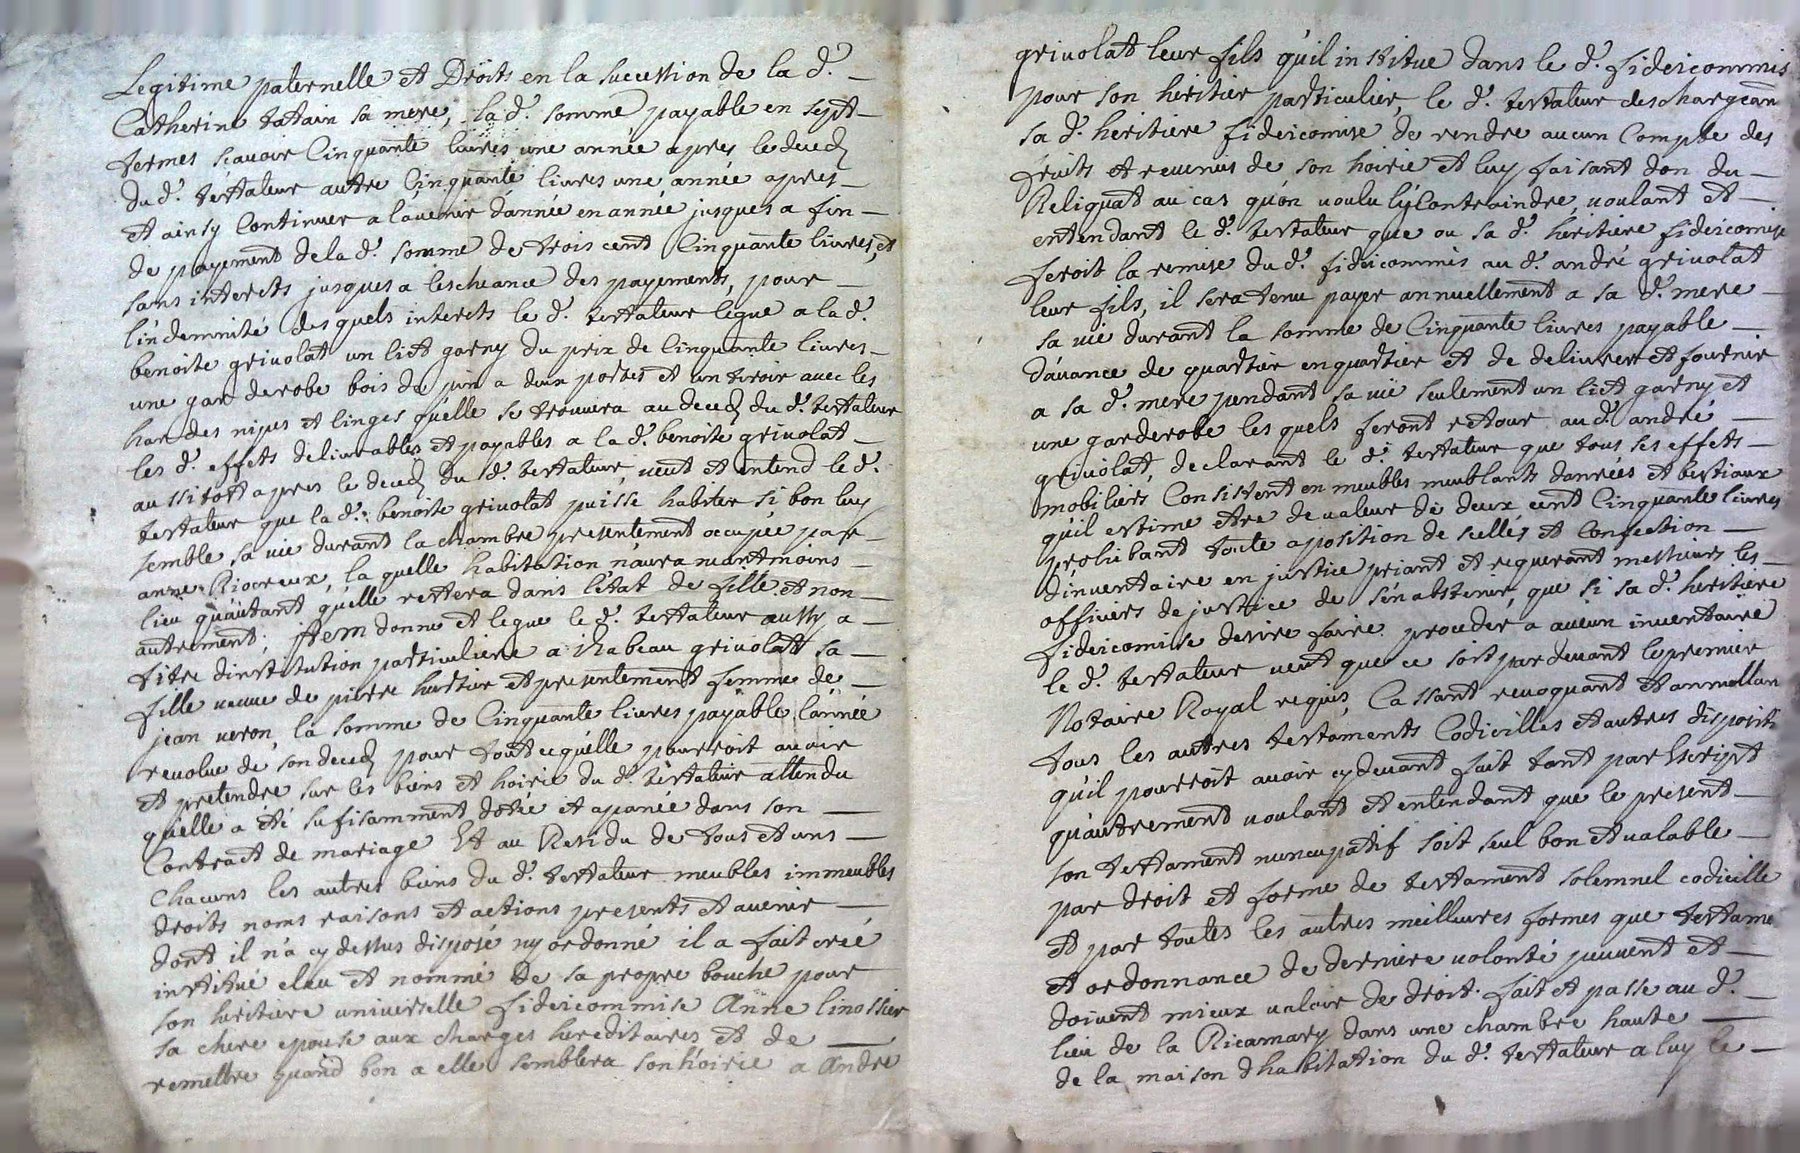 Legitime paternelle et Droits en la succession de la d.e
Catherine tatain sa mere, la d.e somme payable en sept
termes scavoir Cinquante livres une année apres le deced
du d.t testateur autre Cinquante livres une année apres
et ainsy Continuer a lavenir dannée en année jusques a fin
de payement de la d.e somme de trois cent Cinquante livres, et
sans interets jusques a lescheance des payements, pour
l'indemnité des quels interets le d.t testateur legue a la d.e
benoite grivolat un lict garny du prix de Cinquante livres
une garderobe bois de pin a deux portes et un tiroir avec les
hardes nipes et linges quelle se trouvera au deced du d.t testateur
les d.s effets delivrables et payables a la d.e benoite grivolat
aussitott apres le deced du d.t testateur, veut et entend le d.t
testateur que la d.e benoite grivolat puisse habiter si bon luy
semble sa vie durant la chambre presentement occupée par
anne Riocreux, la quelle habitation n'aura neantmoins
lieu qu'autant qu'elle restera dans l'état de fille et non
autrement; Item donne et legue le d.t testateur aussy a
titre dinstitution particuliere a isabeau grivolat sa
fille veuve de pierre hurtier et presentement femme de
jean veron, la somme de Cinquante livres payable l'année
revolue de son deced pour tout ce qu'elle pourroit avoir
et pretendre sur les biens et hoirie du d.t testateur attendu
quelle a été sufisamment dotée et apanée dans son
Contract de mariage Et au Residu de tous et uns
Chacuns les autres biens du d.t testateur meubles immeubles
droits noms raisons et actions presents et avenir
dont il n'a cy dessus disposé ny ordonné il a fait créé
institué elau et nommé de sa propre bouche pour
son heritiere universelle fideicommise Anne linossier
sa chere epouse aux charges hereditaires et de
remettre quand bon a elle semblera son hoirie a André
grivolat leur fils qu'il institue dans le d.t fideicommis
pour son heritier particulier, le d.t testateur deschargeant
sa d.e heritiere fideicomise de rendre aucun Compte des
fruits et revenus de son hoirie et luy faisant don du
Reliquat au cas qu'on voulu l'y Contraindre, voulant et
entendant le d.t testateur que ou sa d.e heritiere fideicomise
feroit la remise du d.t fideicommis au d.t andré grivolat
leur fils, il sera tenu payer annuellement a sa d.e mere
sa vie durant la somme de Cinquante livres payable
d'avance de quartier en quartier et de delivrer et fournir
a sa d.e mere pendant sa vie seulement un lict garny et
une garderobe les quels feront retour au d.t andré
grivolat, declarant le d.t testateur que tous ses effets
mobiliers Consistent en meubles meublants danrées et bestiaux
qu'il estime etre de valeur de deux cent Cinquante livres
prohibant toute aposition de scellés et Confection
d'inventaire en justice priant et requerant messieurs les
officiers de justice de s'en abstenir, que si sa d.e heritiere
fideicomise desire faire proceder a aucun inventaire
le d.t testateur veut que ce soit par devant le premier
Notaire Royal requis, Cassant revoquant et annullan
tous les autres testaments Codicilles et autres disposit
qu'il pourroit avoir cy devant fait tant par Escript
qu'autrement voulant et entendant que le present
son testament nuncupatif soit seul bon et valable
par droit et forme de testament solemnel codicille
et par toutes les autres meilleures formes que testame
et ordonnance de derniere volonté peuvent et
doivent mieux valoir de droit. fait et passe au d.t
lieu de la Ricamary dans une chambre haute
de la maison d habitation du d.t testateur a luy le